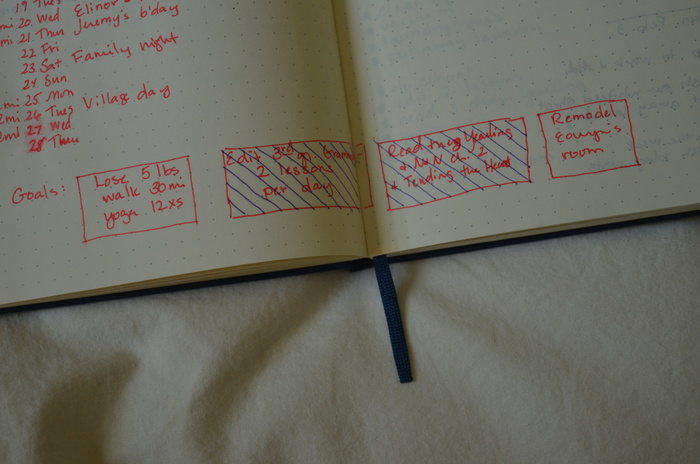 19 Tues
mi 20 Wed Elinor's
mi 21 Thu Jeremy's b'day
22 Fri
23 Sat Family night
24 Sun
mi: 25 Mon
2mi 26 Tues Villag day
2ml 27 Wed
28 Thu
Goals:
Lose 5 lbs.
walk 30 mi
yoga 12xs
Edit 3rd gr. Gramm
2 lessons
per day
Read thru Yearling
+ NN Ch. 2
+ Tending the Heart
Remodel
room